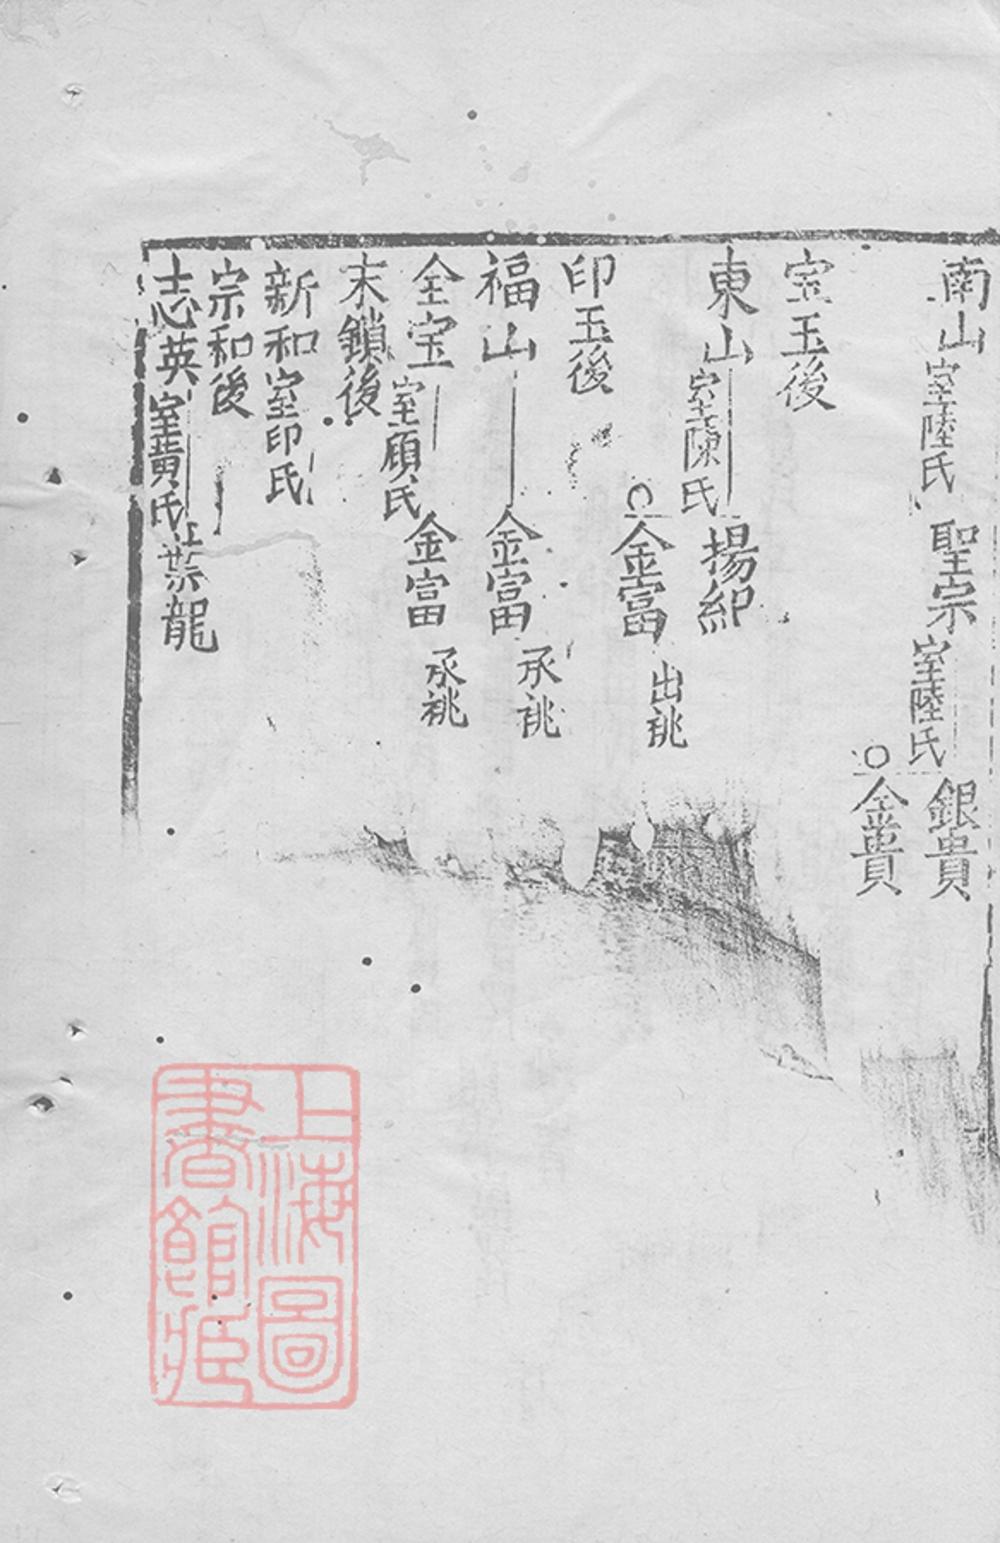 南山室陸氏 聖宗室陸氏 銀貴
金貴
宝玉後
東山室陳氏 揚紀
金富 出祧
印玉後
福山 金富 承祧
全宝室顧氏 金富 承祧
末鎖後
新和室印氏
宗和後
志英室黄氏 龍
上海圖
書館藏